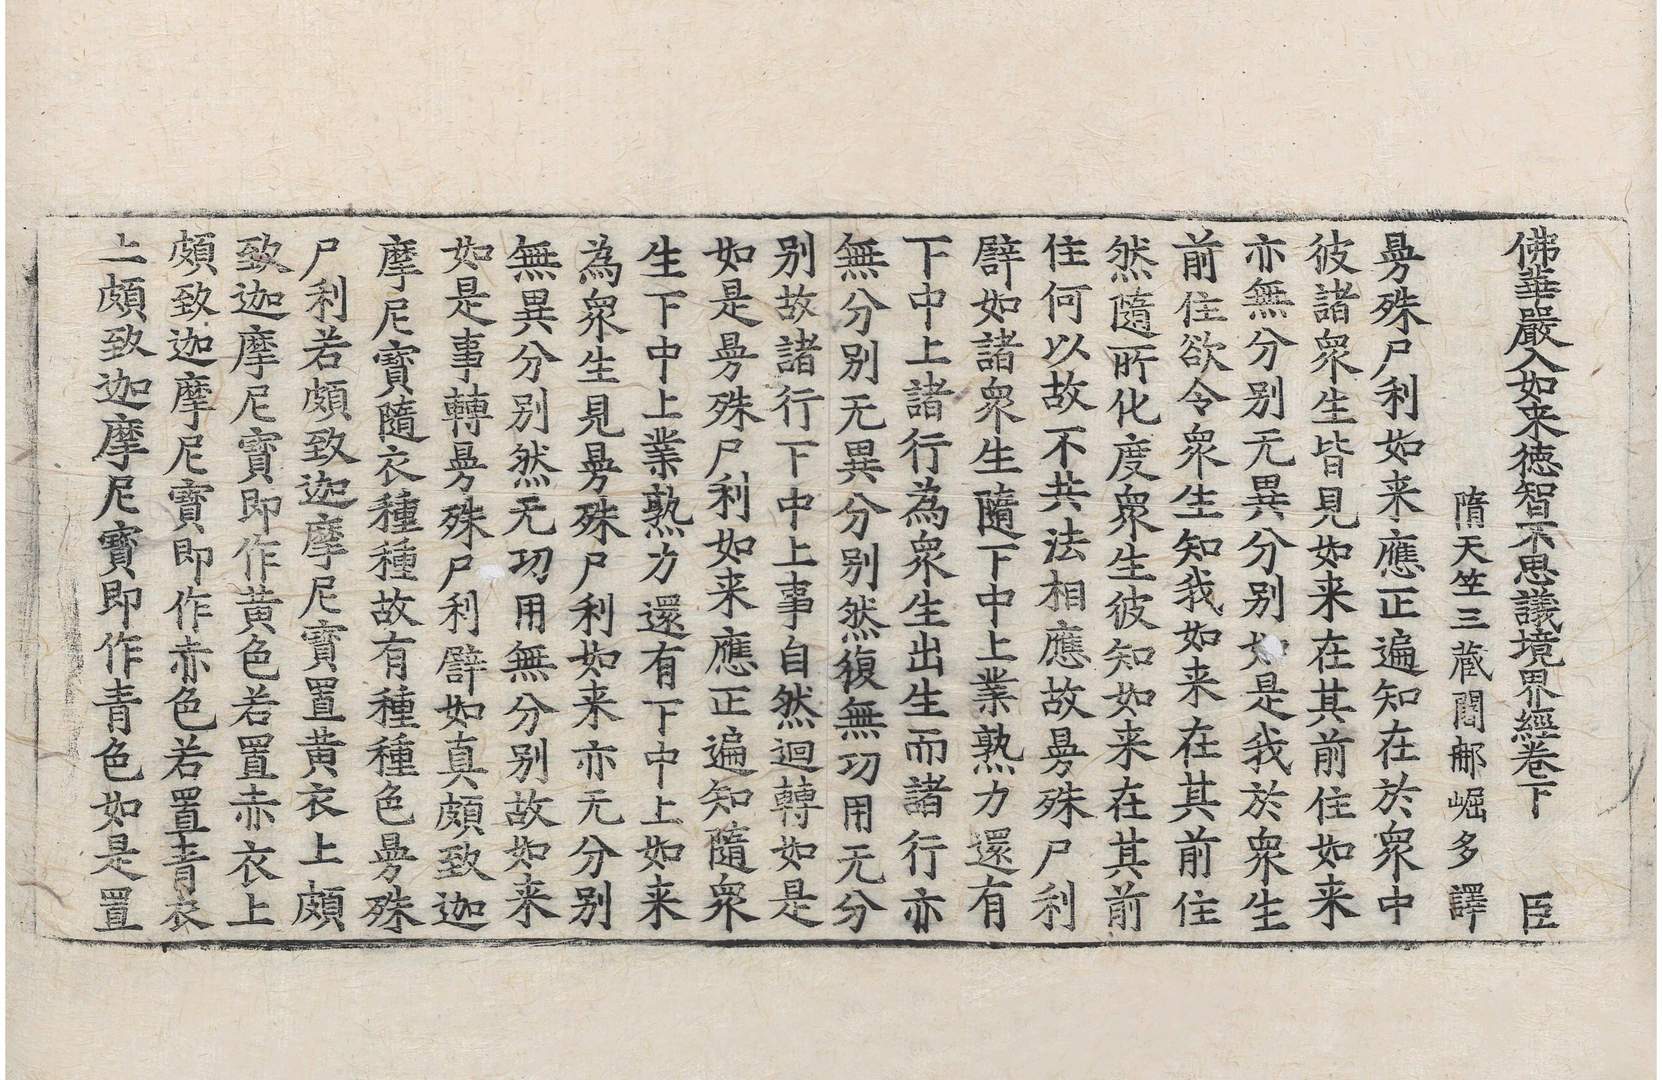 佛華嚴入如来徳智不思議境界經卷下 臣
隋天竺三蔵闍那崛多譯
㬅殊尸利如来應正遍知在於衆中
彼諸衆生皆見如来在其前住如来
亦無分别无異分别如是我於衆生
前住欲令衆生知我如来在其前住
然隨所化度衆生彼知如来在其前
住何以故不共法相應故㬅殊尸利
譬如諸衆生隨下中上業熟力還有
下中上諸行為衆生出生而諸行亦
無分别无異分别然復無功用无分
别故諸行下中上事自然迴轉如是
如是㬅殊尸利如来應正遍知隨衆
生下中上業熟力還有下中上如来
為衆生見㬅殊尸利如来亦无分别
無異分别然无功用無分别故如来
如是事轉㬅殊尸利譬如真頗致迦
摩尼寳隨衣種種故有種種色㬅殊
尸利若頗致迦摩尼寳置黄衣上頗
致迦摩尼寳即作黄色若置赤衣上
頗致迦摩尼寳即作赤色若置青衣
上頗致迦摩尼寳即作青色如是置